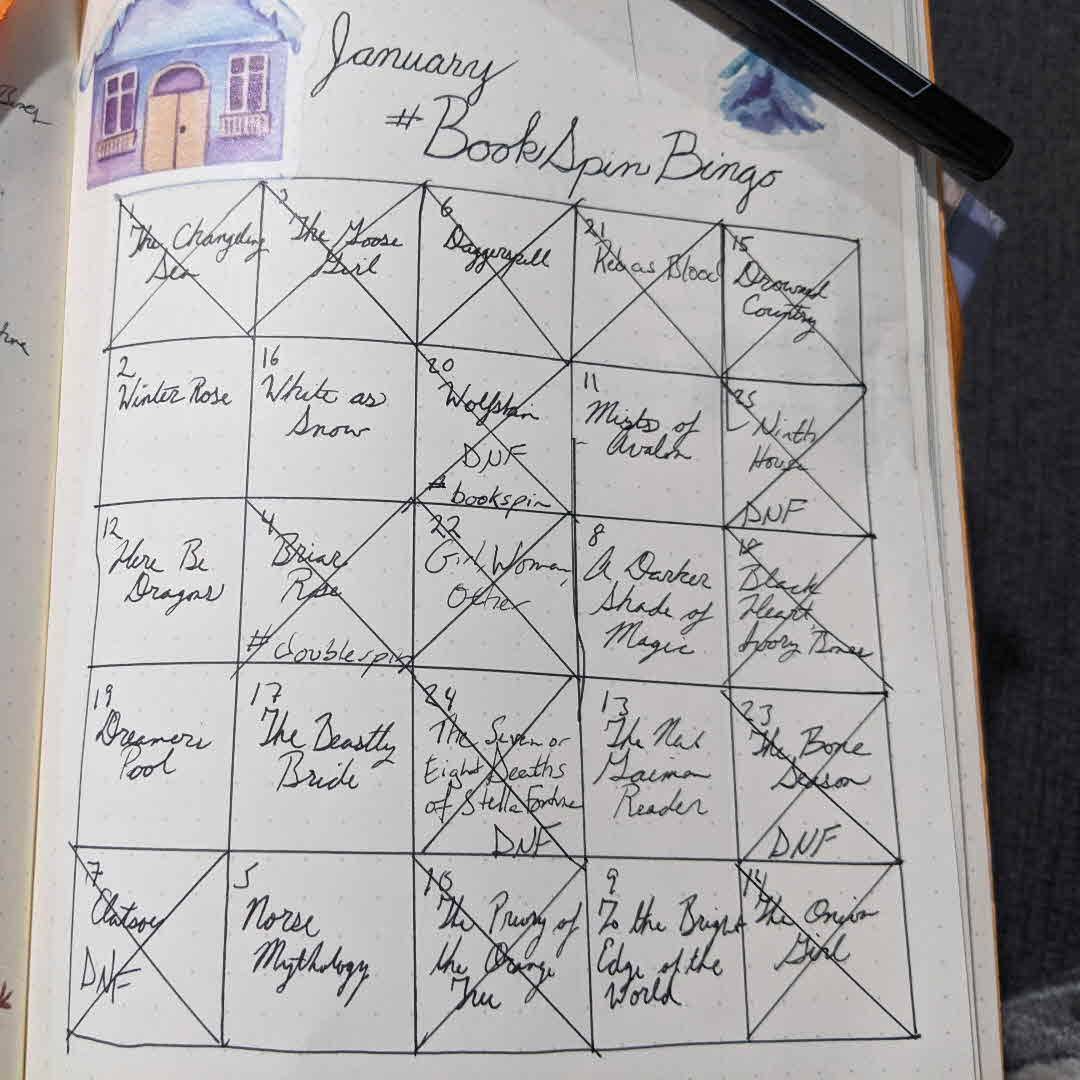 January
#BookSpinBingo
The Changeling
Sea
3
The Goose
Girl
6
Daggerspell
21
Red as Blood
15
Drowned
Country
2
Winter Rose
16
White as
Snow
20
Wolfskin
DNF
#bookspin
11
Mists of
Avalon
25
Ninth
House
DNF
12
Here Be
Dragons
4
Briar
Rose
#doublespin
22
Girl, Woman,
Other
8
A Darker
Shade of
Magic
18
Black
Heart,
Ivory Bones
19
Dreamers
Pool
17
The Beastly
Bride
24
The Seven or
Eight Deaths
of Stella Fortune
DNF
13
The Neil
Gaiman
Reader
23
The Bone
Season
DNF
7
Elatsoe
DNF
5
Norse
Mythology
10
The Priory of
the Orange
Tree
9
To the Bright
Edge of the
World
14
The Onion
Girl